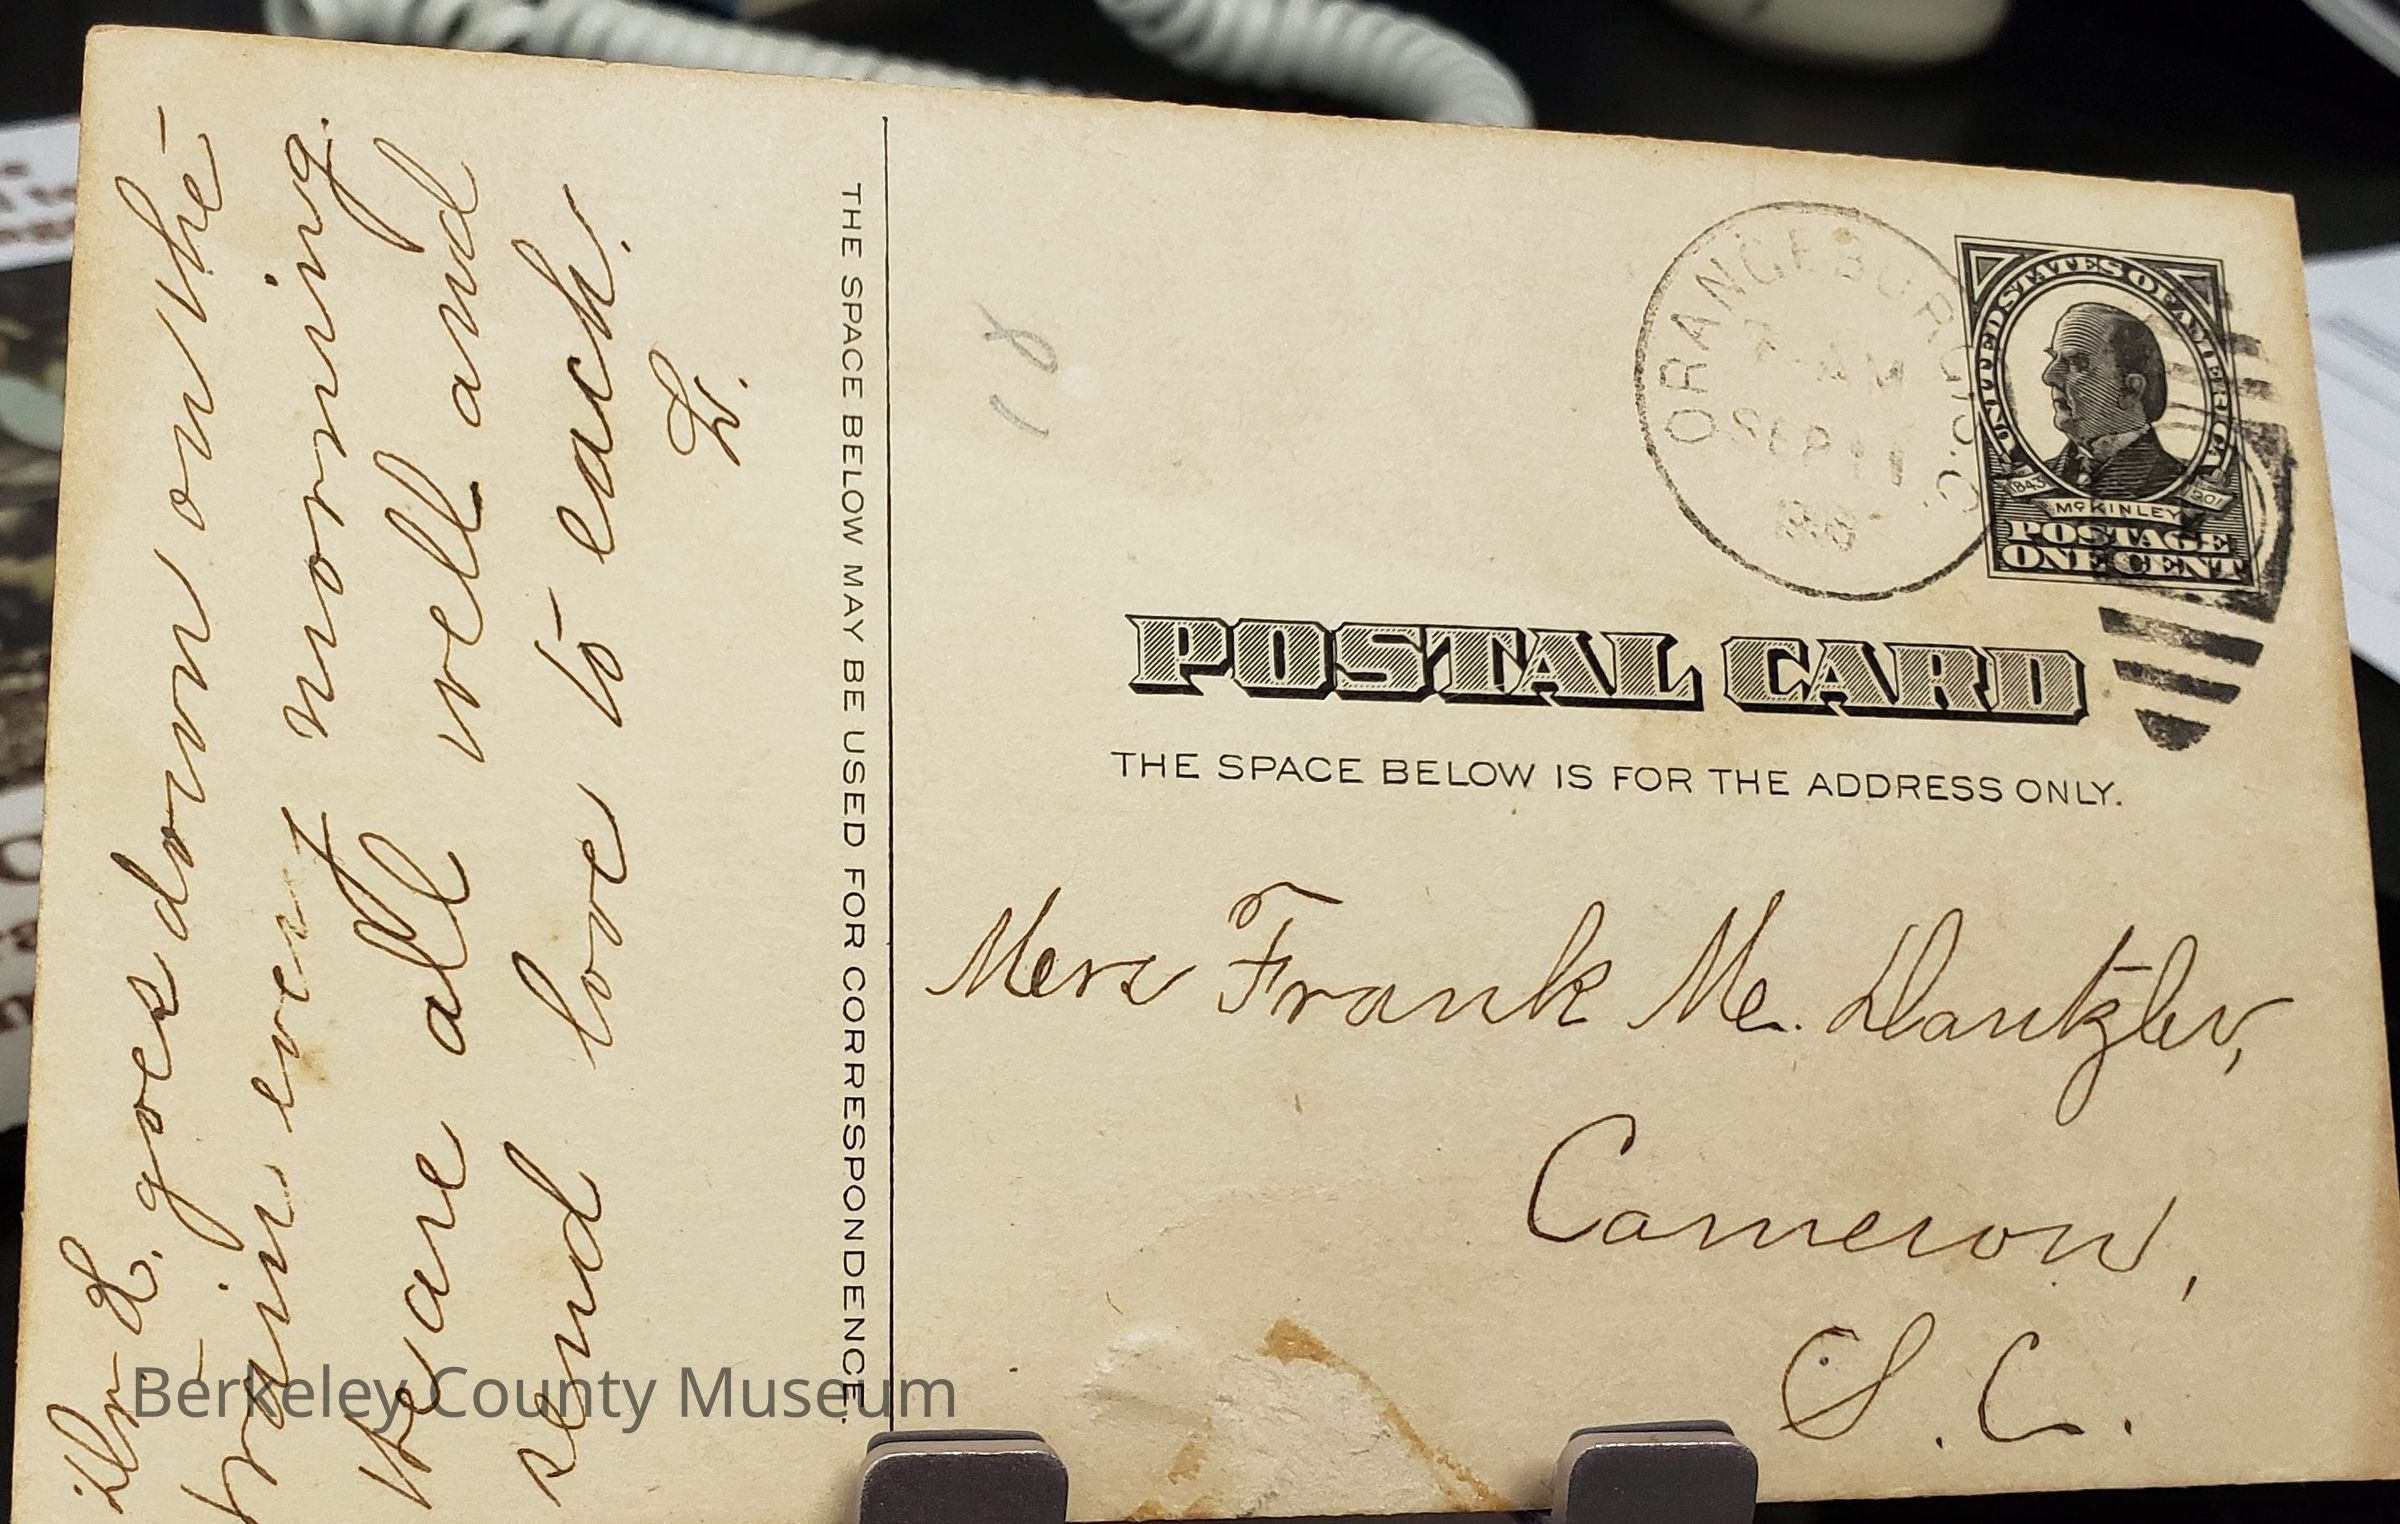 Dr. L. goes down on the
train every morning.
We are all well and
send love to each.
L.
THE SPACE BELOW MAY BE USED FOR CORRESPONDENCE.
18
ORANGEBURG, S.C.
7-AM
SEP 11
UNITED STATES OF AMERICA
1843
1901
McKINLEY
POSTAGE
ONE CENT
POSTAL CARD
THE SPACE BELOW IS FOR THE ADDRESS ONLY.
Mrs Frank M. Dantzler,
Cameron,
S. C.
Berkeley County Museum